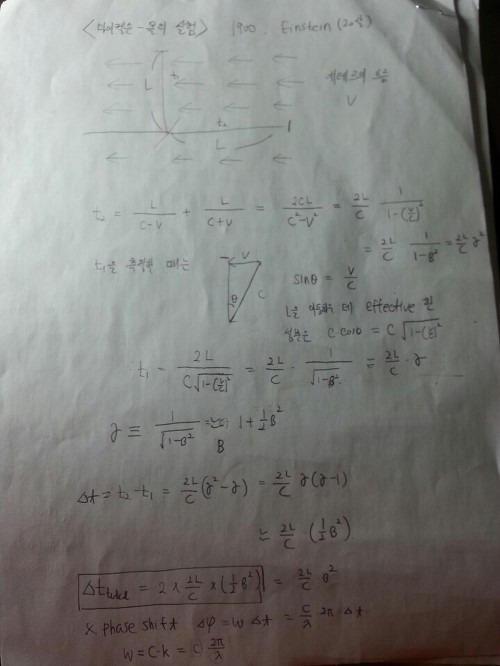 <마이컬슨-몰리 실험> 1900. Einstein (20살)
L t₁
에테르의 흐름
V
t₂
L
t₂ = L/(C-V) + L/(C+V) = 2CL/(C²-V²) = 2L/C 1/(1-(V/C)²)
= 2L/C 1/(1-B²) = 2L/C γ²
t₁을 측정할 때는
V
θ C
sinθ = V/C
L을 이동하는 데 effective 한
성분은 C cosθ = C√(1-(V/C)²)
t₁ = 2L/(C√(1-(V/C)²)) = 2L/C · 1/√(1-B²) = 2L/C · γ
γ ≡ 1/√(1-B²) ≈ 1 + ½B²
B
Δt = t₂ - t₁ = 2L/C (γ² - γ) = 2L/C γ(γ-1)
≈ 2L/C (½B²)
Δt total = 2 × 2L/C × (½B²) = 2L/C B²
X phase shift Δφ = w Δt = C/λ 2π Δt
w = C·k = C 2π/λ